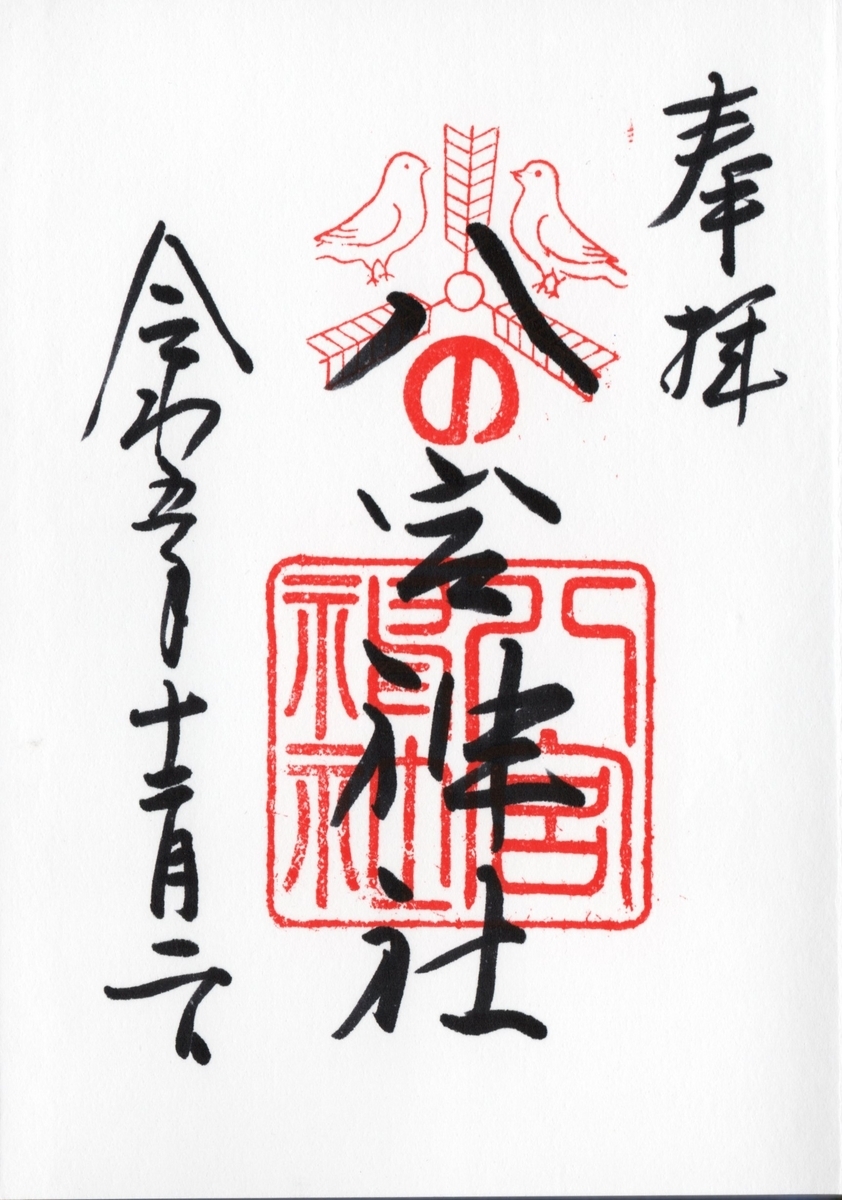 奉拝
八の宮神社
八宮神社
令和五年十二月二日